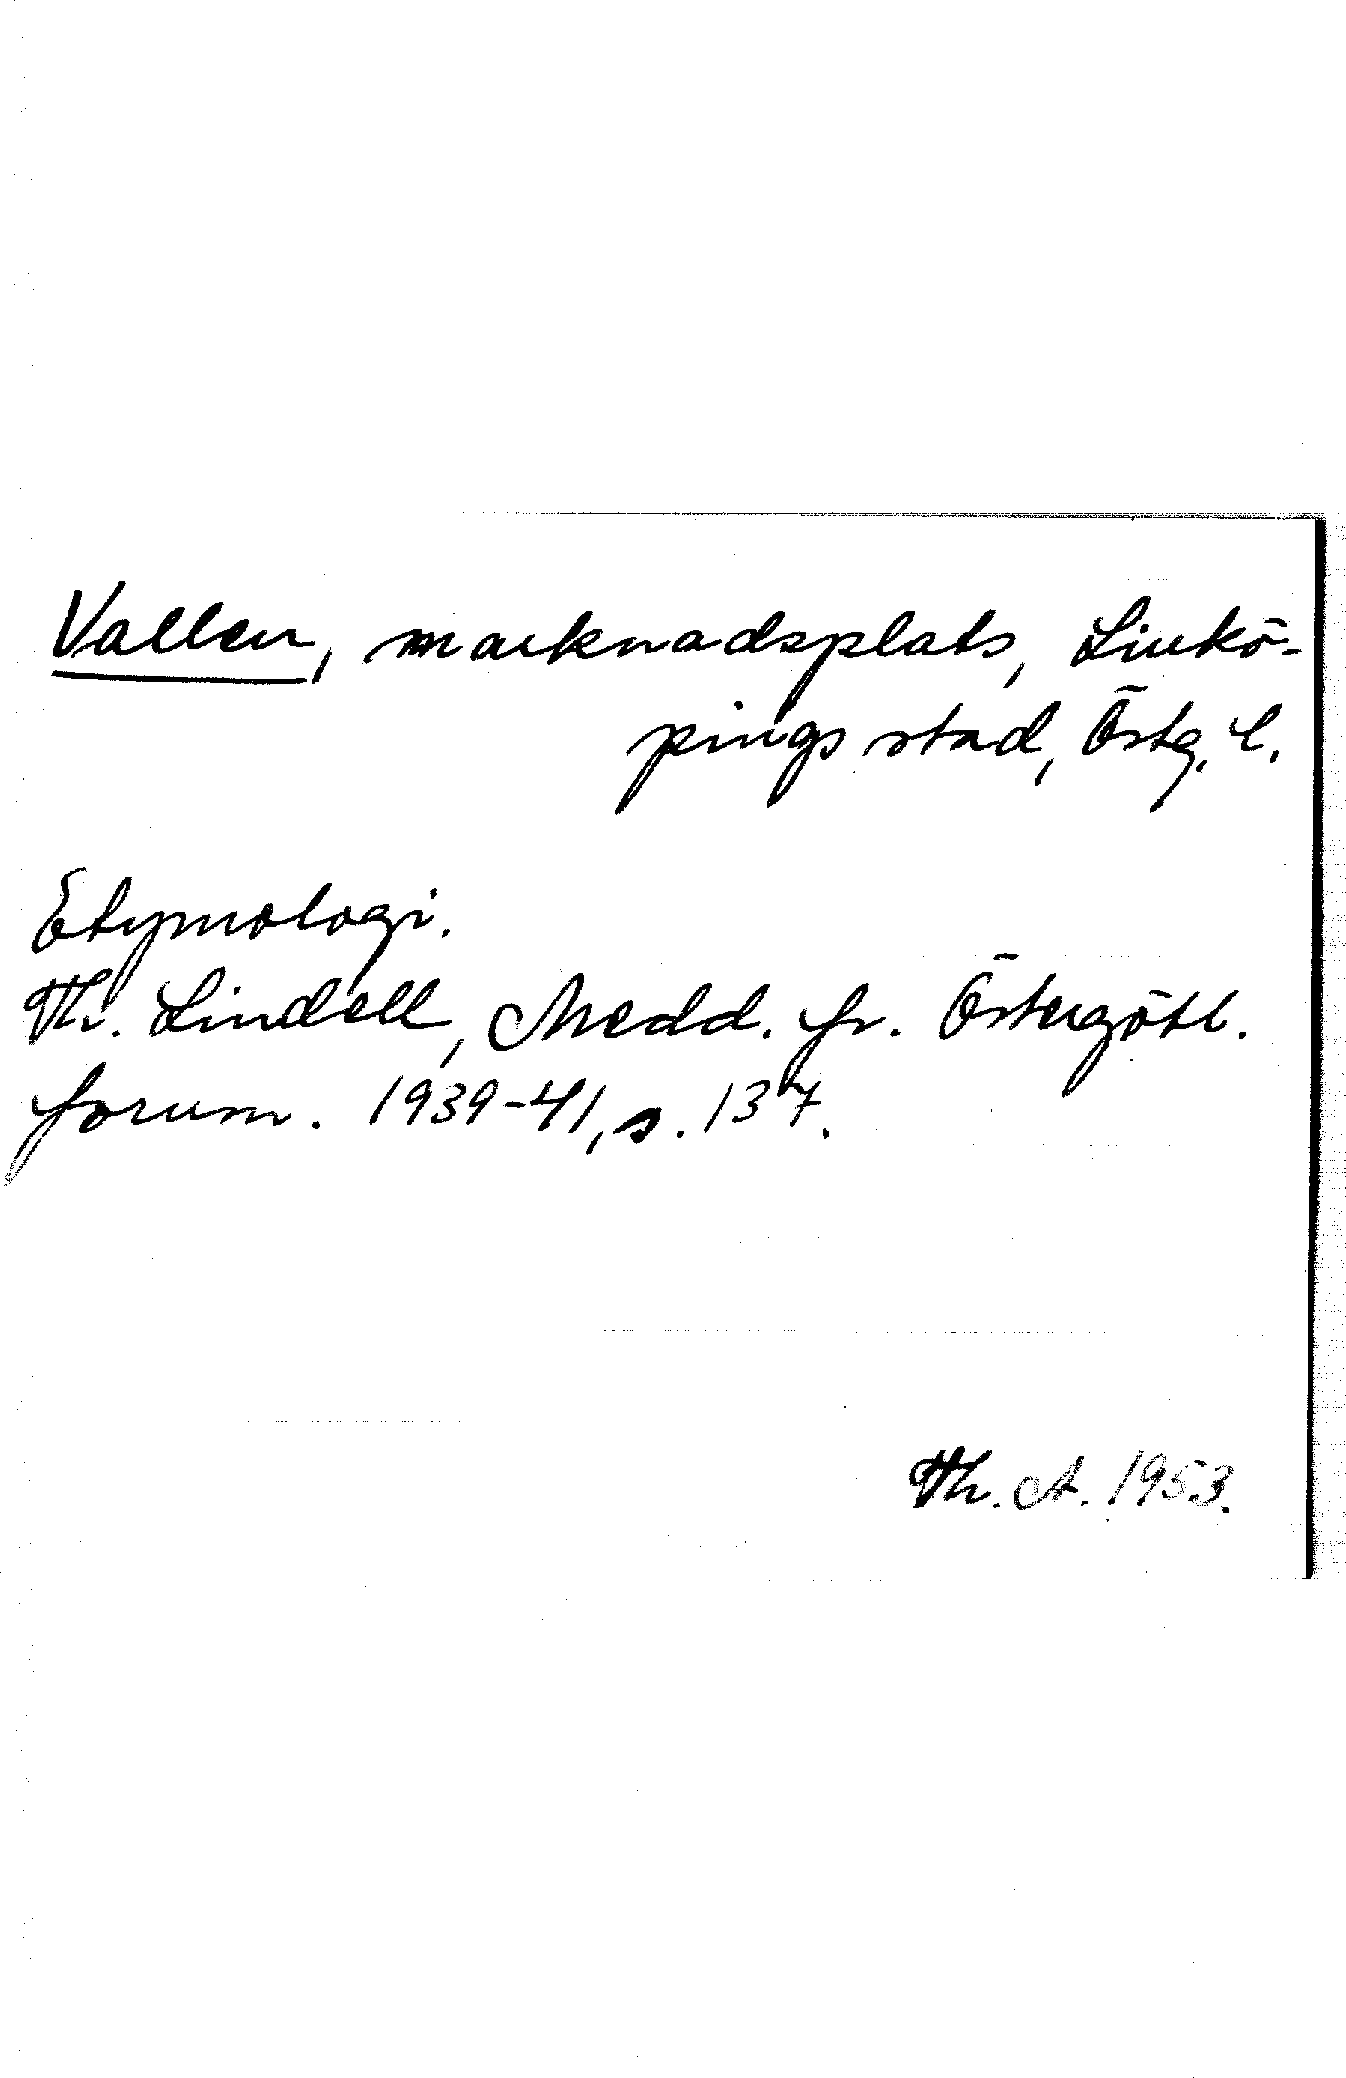 Vallen, marknadsplats, Linkö-
pings stad, Östg. l.
Etymologi.
Th. Lindell, Medd. fr. Östergötl.
fornm. 1939-41, s. 137.
Th. A. 1953.